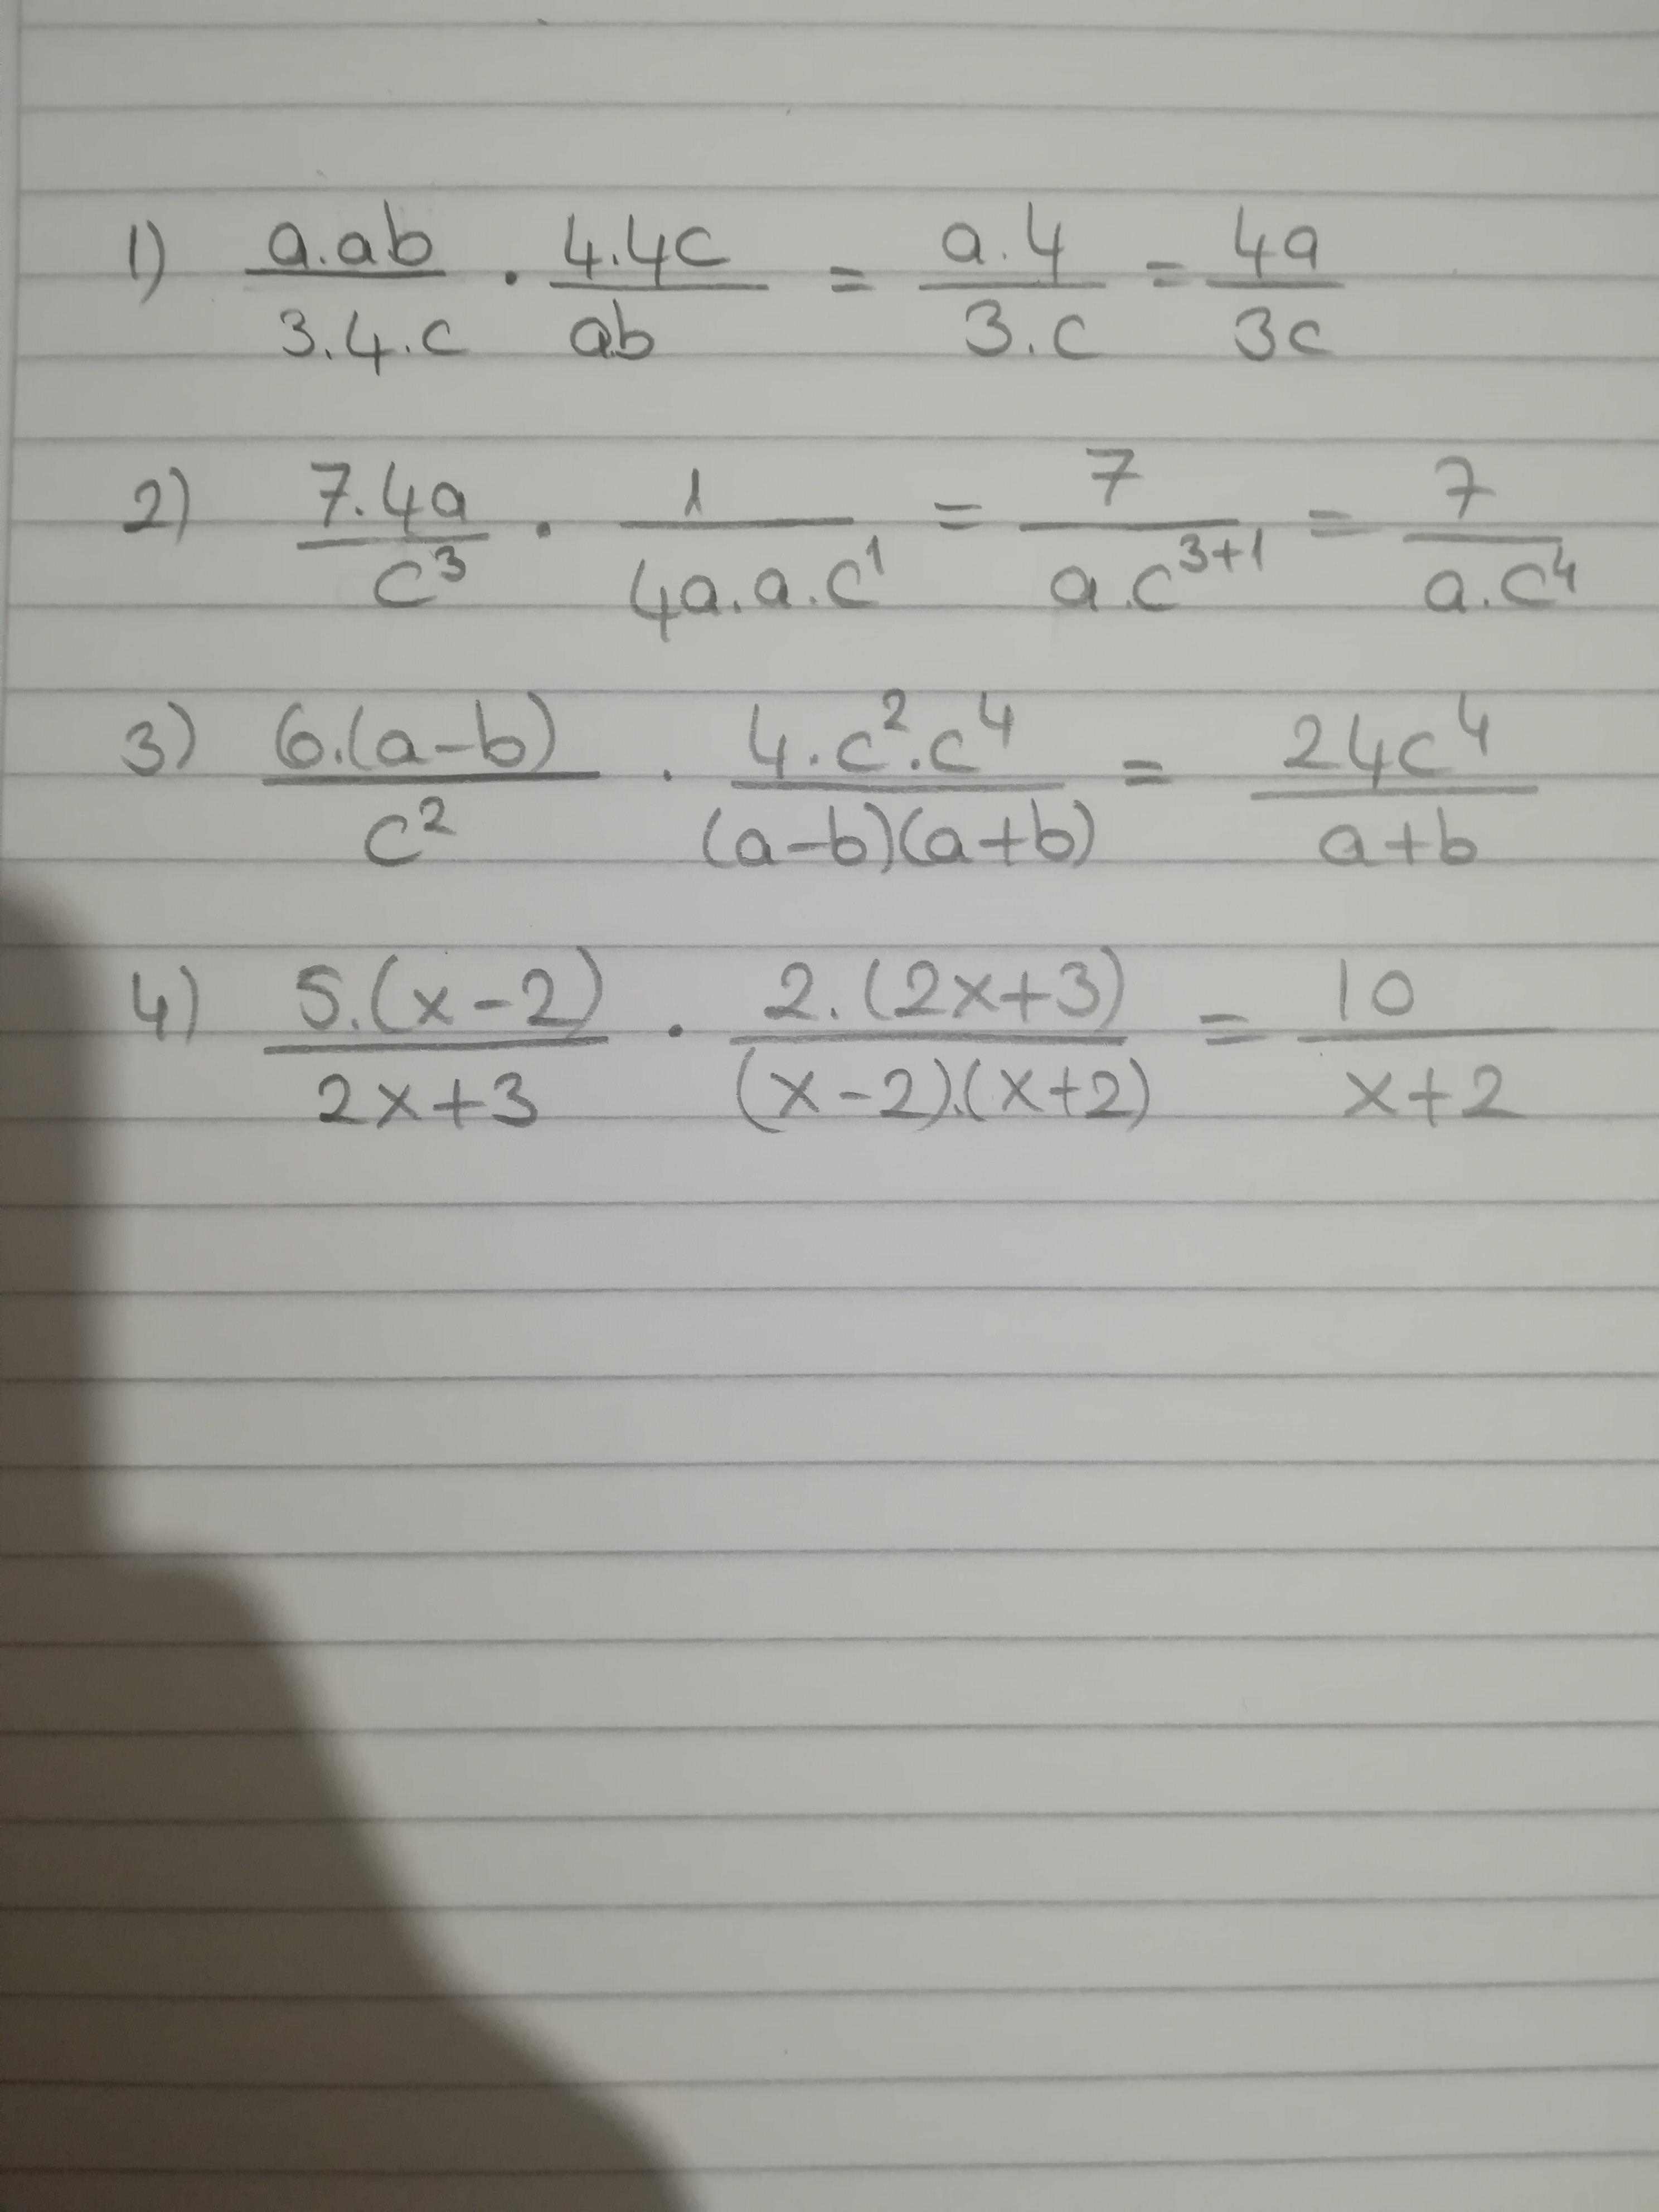 1) a.ab/3.4.c . 4.4c/ab = a.4/3.c = 4a/3c
2) 7.4a/c³ . 1/4a.a.c¹ = 7/a.c³⁺¹ = 7/a.c⁴
3) 6.(a-b)/c² . 4.c².c⁴/(a-b)(a+b) = 24c⁴/a+b
4) 5.(x-2)/2x+3 . 2.(2x+3)/(x-2).(x+2) = 10/x+2